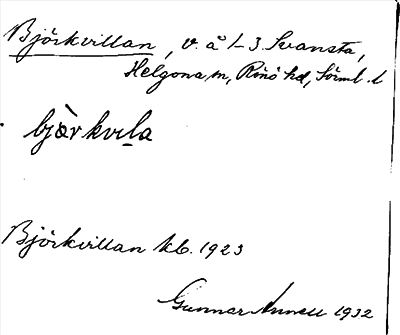 Björkvillan, v. å 1-3 Svansta,
Helgona sn, Rönö hd, Sörml. l
bjärkvila
Björkvillan kb. 1923
Gunnar Annell 1932